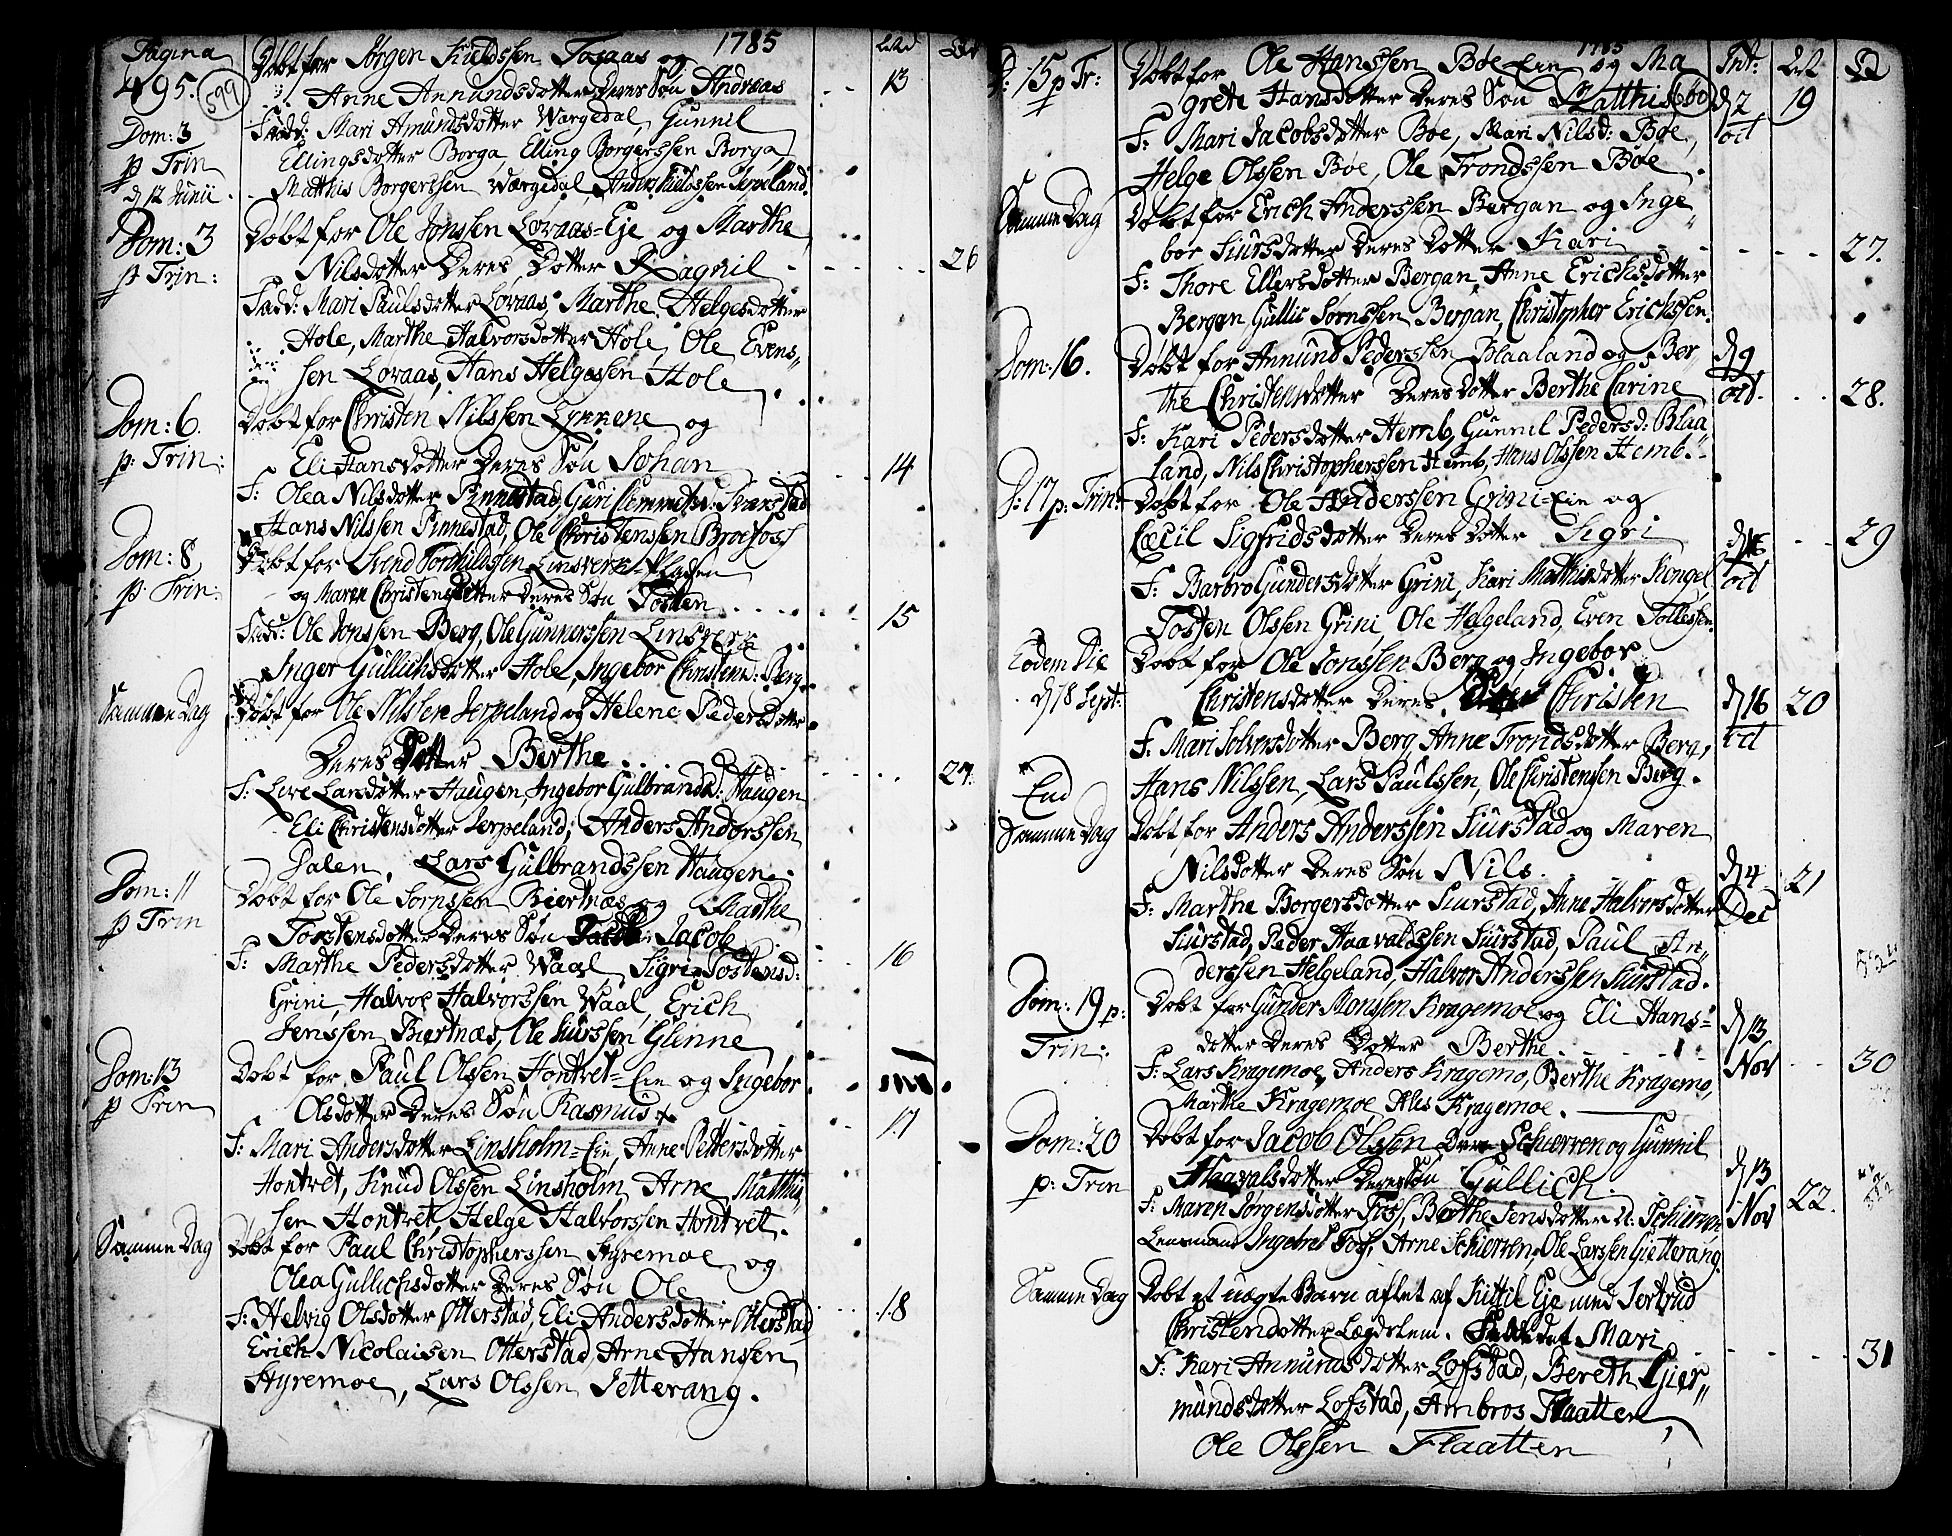 Pagina
495.
599
1785
Døbt for Jørgen Kieldssen Foraas og
Anne Annundsdotter Deres Søn Andreas
13
Dom: 3
p Trin
d 12 Junii.
Fadd: Mari Amundsdotter Wargedal, Gunnil
Ellingsdotter Borga, Elling Borgerssen Borga,
Matthis Borgerssen Wargedal, Anders Kieldssen Serpeland.
Dom: 3
p Trin:
Døbt for Ole Jonssen Løvaas=Eje og Marthe
Nilsdotter Deres Dotter Ragnil
26
Fadd: Mari Paulsdotter Løvaas, Marthe Helgesdotter
Hole, Marthe Halvorsdotter Hole, Ole Evens„
sen Løvaas, Hans Helgessen Hole
Dom: 6.
p: Trin:
Døbt for Christen Nilssen og
Eli Hansdotter Deres Søn Johan
14
F: Olea Nilsdotter Pinnestad, Guri
Hans Nilssen Pinnestad, Ole Christenssen Broefoss
Dom: 8,
p: Trin:
Døbt for Svend Torkildssen Linsverk=Pladen
og Maren Christensdotter Deres Søn Tosten
15
Fadd: Ole Jonssen Berg, Ole Gunnerssen Linsverk
Inger Gullichsdotter Hole, Ingebor Christensd: Berg.
Samme Dag
Døbt for Ole Nilssen Serpeland og Helene Pedersdotter
Deres Dotter Berthe
27.
F: Live Larsdotter Haugen, Ingebor Gulbrandsd: Haugen
Eli Christensdotter Serpeland, Anders Anderssen
Dalen, Lars Gulbrandssen Haugen.
Dom: 11
p Trin
Døbt for Ole Jørnssen Biertnæs og Marthe
Tostensdotter Deres Søn Jacob
16
F: Marthe Pedersdotter Waal, Sigri Tostensd:
Grini, Halvor Halvorssen Waal, Erich
Jenssen Biertnæs, Ole Siurssen Glenne
Dom: 13
p Trin
Døbt for Paul Olssen Hontvet=Eie og Ingebor
Olsdotter Deres Søn Rasmus
17
F: Mari Andersdotter Linsholm=Eie, Anne Pettersdotter
Hontvet, Knud Olssen Linsholm, Arne Matthis„
sen Hontvet, Helge Halvorssen Hontvet.
Samme Dag
Døbt for Paul Christopherssen Styremoe og
Olea Gullichsdotter Deres Søn Ole
18
F: Helvig Olsdotter Otterstad, Eli Andersdotter Otterstad
Erich Nicolaisen Otterstad, Arne Hanssen
Styremoe, Lars Olssen Jetterang.
1785
Int:
D: 15 p Tr:
Døbt for Ole Hanssen Bøe=Eie og Ma
grete Hansdotter Deres Søn Matthis
600
d 2
oct
19
F: Mari Jacobsdotter Bøe, Mari Nilsd: Bøe,
Helge Olssen Bøe, Ole Trondssen Bøe.
Samme Dag
Døbt for Erich Anderssen Bergan og Inge„
bor Siursdotter Deres Dotter Kari
27.
F: Thore Ellersdotter Bergan, Anne Erichsdotter
Bergan, Gullic Jørnssen Bergan, Christopher Erichssen.
Dom: 16.
Døbt for Annund Pederssen Blaaland og Ber„
the Christensdotter Deres Dotter Berthe Carine
d 9
oct.
28.
F: Kari Pedersdotter Hemb, Gunnil Pedersd: Blaa
land, Nils Christopherssen Hemb, Hans Olssen Hemb.
D: 17 p: Trin:
Døbt for Ole Anderssen Grini=Eie og
Cæcil Sigfridsdotter Deres Dotter Sigri
d 16
oct
29
F: Barbro Gundersdotter Grini, Kari Mathisdotter Kongel
Tosten Olssen Grini, Ole Helgeland, Even Tollessen.
Eodem Die
d 18 Sept:
Døbt for Ole Jonssen Berg og Ingebor
Christensdotter Deres Søn Christen
d 16
oct
20
F: Mari Solversdotter Berg, Anne Trondsdotter Berg,
Hans Nilssen, Lars Paulssen, Ole Christenssen Berg.
End
Samme Dag
Døbt for Anders Anderssen Siurstad og Maren
Nilsdotter Deres Søn Nils.
d 4
Dec
21
F: Marthe Borgersdotter Siurstad, Anne Halvorsdotter
Siurstad, Peder Haavaldssen Siurstad, Paul An„
derssen Helgeland, Halvor Anderssen Siurstad.
Dom: 19 p:
Trin:
Døbt for Gunder Monssen Kragemoe og Eli Hans=
dotter Deres Dotter Berthe
d 13
Nov
30
F: Lars Kragemoe, Anders Kragemo, Berthe Kragemo,
Marthe Kragemoe, Ales Kragemoe.
Dom: 20
p: Trin
Døbt for Jacob Olssen Schierven og Gunnil
Haavalsdotter Deres Søn Gullich.
d 13
Nov
22.
F: Maren Jørgensdotter Foss, Berthe Jensdotter Schierven
Lensmand Ingebret Foss, Arne Schierven, Ole Larssen Gietterang.
Samme Dag
Døbt et uægte Barn aflet af Kittil Eje med Jertrud
Christendotter Lægdslem. Mari
31
F: Kari Annundsdotter Lofstad, Bereth Gier„
mundsdotter Lofstad, Ambros Flaatten
Ole Olssen Flaatten